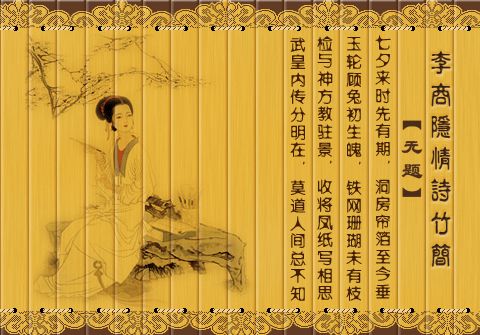 李商隱情詩竹簡
【无题】
七夕来时先有期，洞房帘箔至今垂
玉轮顾兔初生魄，铁网珊瑚未有枝
检与神方教驻景，收将凤纸写相思
武皇内传分明在，莫道人间总不知